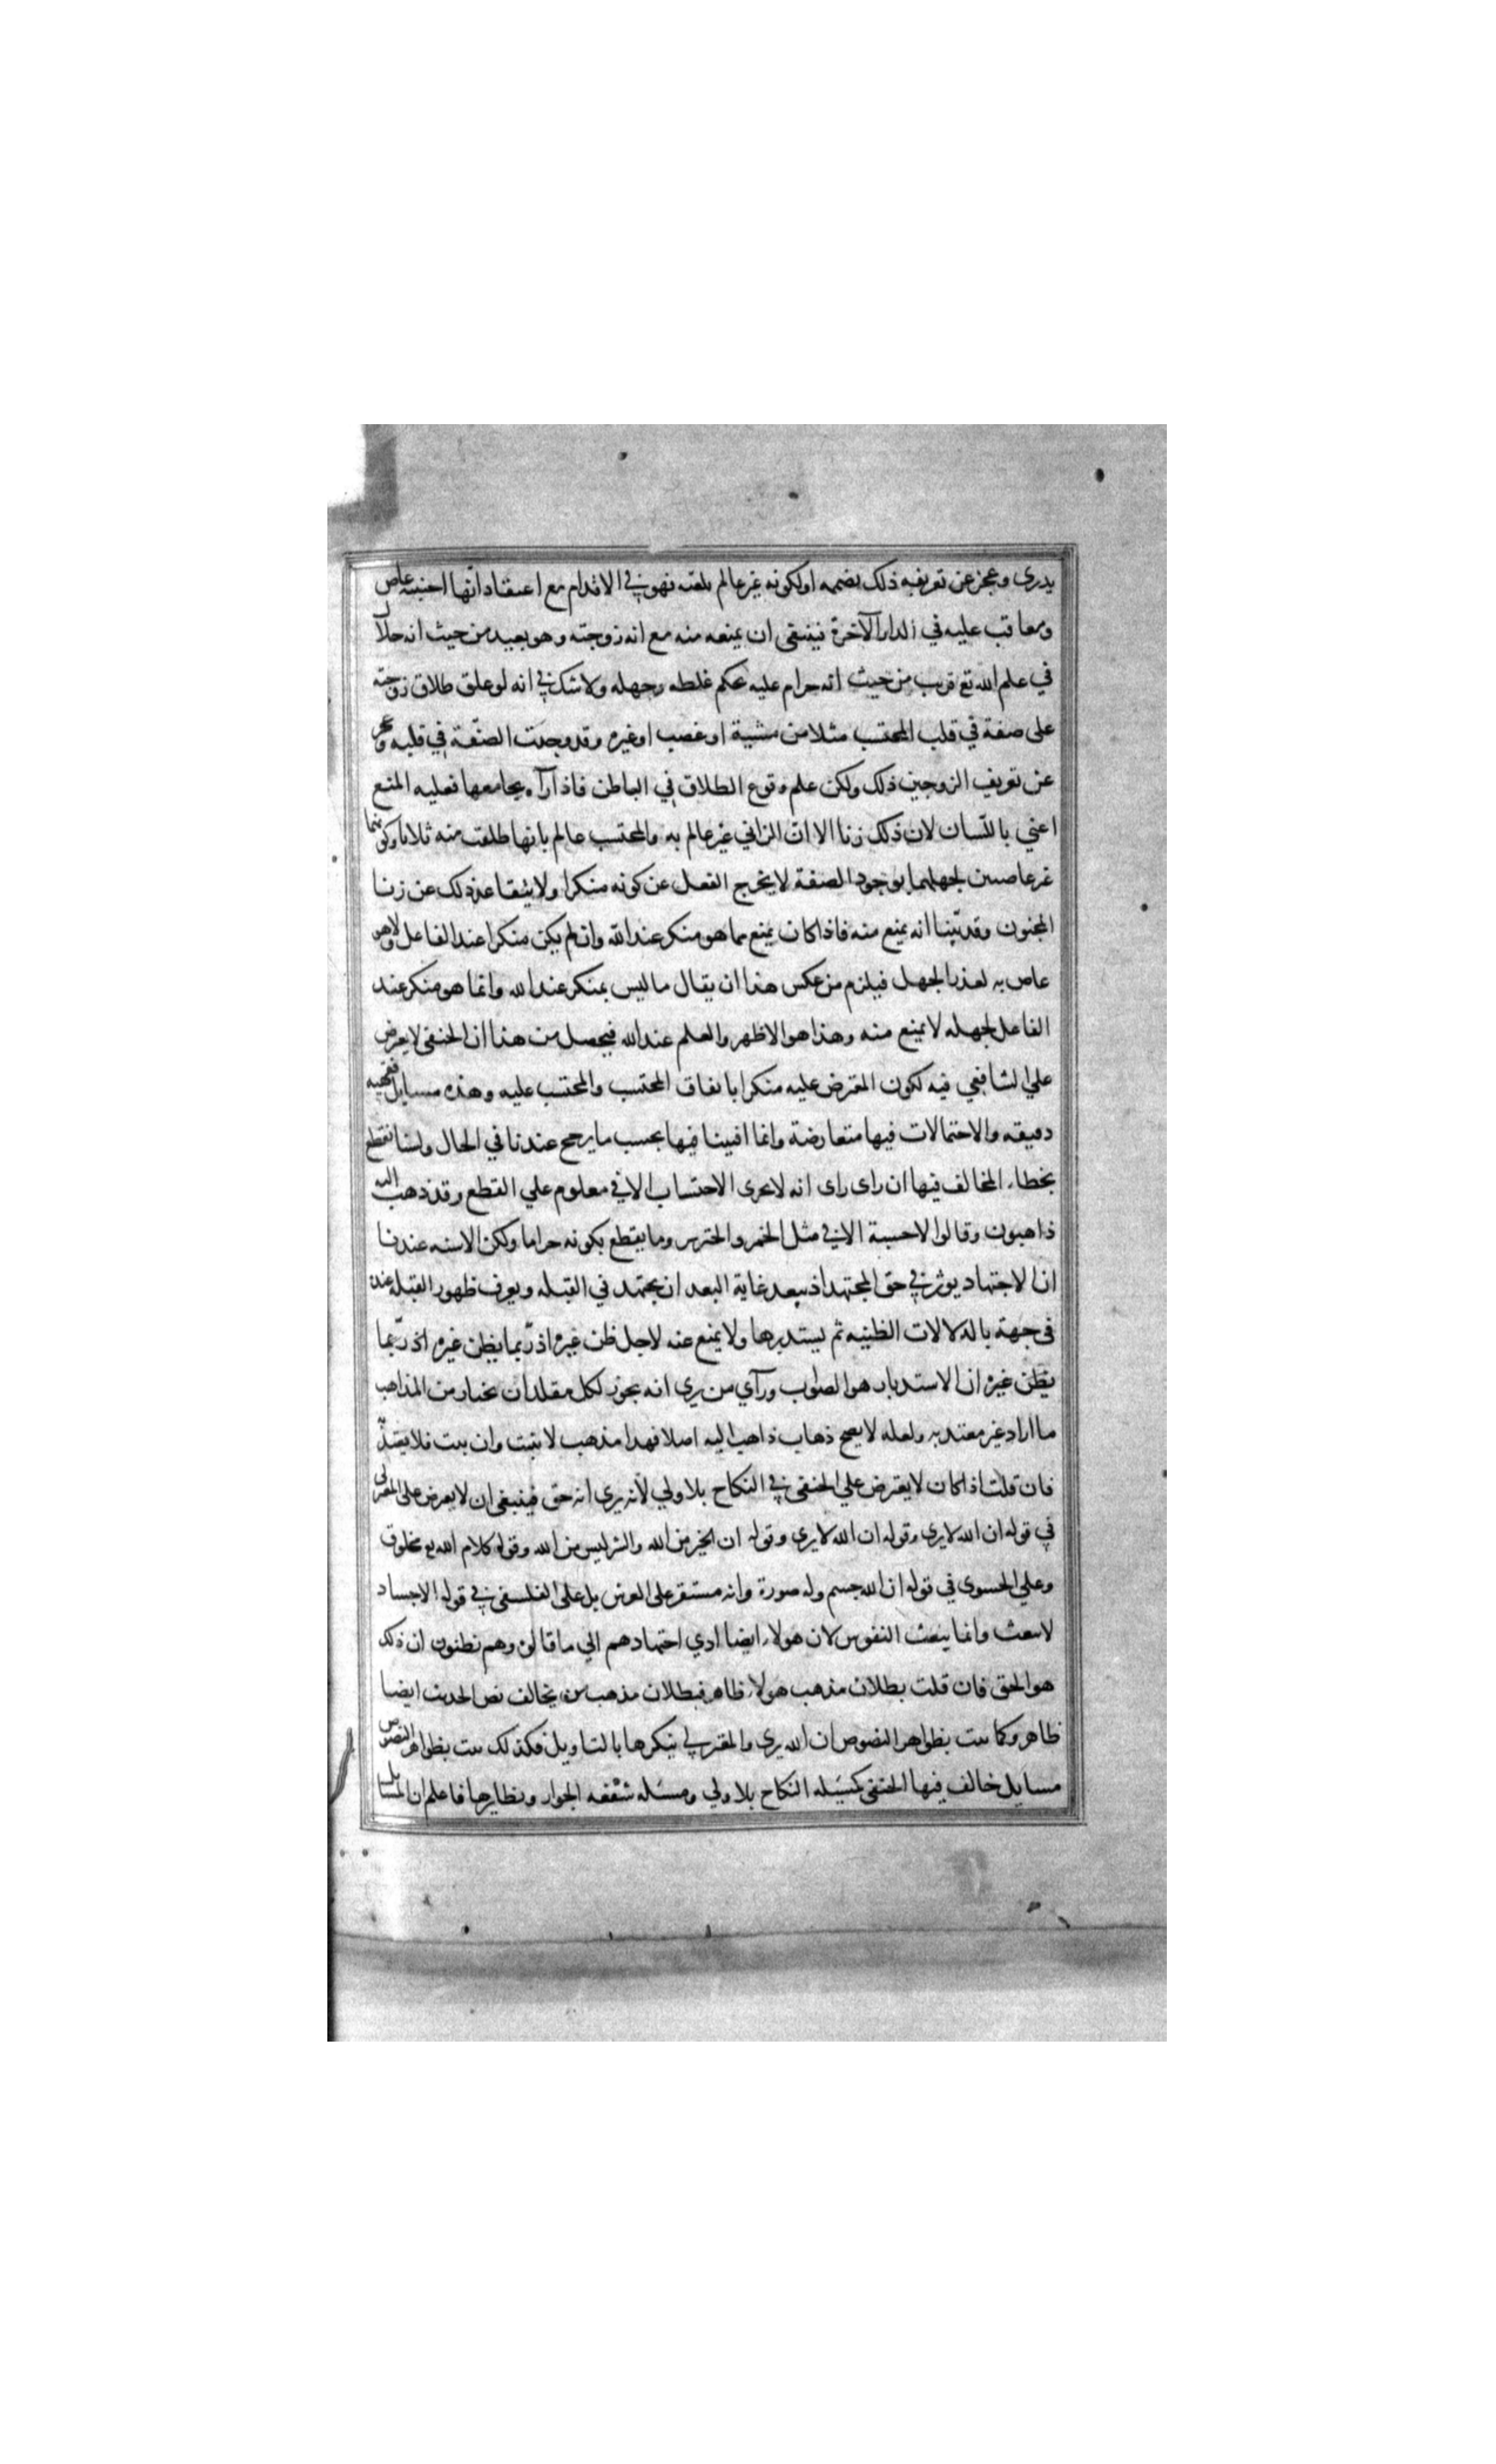 يدرى وعجز عن تعريفه ذلك لصممه اولكونه غير عالم بلغته فهو في الاقدام مع اعتقاد انها اجنبية عاص
ومعاقب عليه في الدار الآخرة فينبغى ان يمنعه منه مع انه زوجته وهو بعيد من حيث انه حلال
في علم الله تع قريب من حيث انه حرام عليه بحكم غلطه وجهله ولا شك في انه لو علق طلاق زوجته
على صفة في قلب المحتسب مثلا من مشية او غضب او غيره وقد وجدت الصفة في قلبه وعجز
عن تعريف الزوجين ذلك ولكن علم وقوع الطلاق في الباطن فاذا رآه يجامعها فعليه المنع
اعني باللسان لان ذلك زنا الا ان الزاني غير عالم به والمحتسب عالم بانها طلقت منه ثلاثا وكونهما
غير عاصيين لجهلهما بوجود الصفة لا يخرج الفعل عن كونه منكرا ولا يتقاعد ذلك عن زنا
المجنون وقد بينا انه يمنع منه فاذا كان يمنع مما هو منكر عند الله وان لم يكن منكرا عند الفاعل ولا هو
عاص به لعذر الجهل فيلزم من عكس هذا ان يقال ما ليس بمنكر عند الله وانما هو منكر عند
الفاعل لجهله لا يمنع منه وهذا هو الاظهر والعلم عند الله فيحصل من هذا ان الحنفى لا يعرض
علي الشافعي فيه لكون المعترض عليه منكرا باتفاق المحتسب والمحتسب عليه وهذه مسايل فقهيه
دقيقه والاحتمالات فيها متعارضة وانما افتينا فيها بحسب ما يرجح عندنا في الحال ولسنا نقطع
بخطاء المخالف فيها ان راى راى انه لا يجرى الاحتساب الا في معلوم علي القطع وقد ذهب اليه
ذاهبون وقالوا لا حسبة الا في مثل الخمر والخنزير وما يقطع بكونه حراما ولكن الاشبه عندنا
ان الاجتهاد يوثر في حق المجتهد اذ يبعد غاية البعد ان يجتهد في القبله ويعرف ظهور القبله عنده
فى جهة بالدلالات الظنيه ثم يستدبرها ولا يمنع عنه لاجل ظن غيره اذ ربما يظن غيره اذ ربما
يظن غيره ان الاستدبار هو الصواب ورآي من يرى انه يجوز لكل مقلد ان يختار من المذاهب
ما اراد غير معتد به ولعله لا يصح ذهاب ذاهب اليه اصلا فهذا مذهب لا يثبت وان ثبت فلا يعتد به
فان قلت اذا كان لا يعترض علي الحنفى في النكاح بلا ولي لأنه يرى انه حق فينبغى ان لا يعرض على المعتزلى
في قوله ان الله لا يرى وقوله ان الله لا يرى وقوله ان الخير من الله والشر ليس من الله وقوله كلام الله تع مخلوق
وعلي الحسوى في قوله ان الله جسم وله صورة وانه مستقر على العرش بل على الفلسفى في قوله الاجساد
لا تبعث وانما يبعث النفوس لان هولاء ايضا ادي اجتهادهم الي ما قالوه وهم يظنون ان ذلك
هو الحق فان قلت بطلان مذهب هولاء ظاهر فبطلان مذهب من يخالف نص الحديث ايضا
ظاهر وكما ثبت بظواهر النصوص ان الله يرى والمعتزلي ينكرها بالتاويل فكذلك ثبت بظواهر النصوص
مسايل خالف فيها الحنفى كمسئله النكاح بلا ولي ومسئله شفعه الجوار ونظايرها فاعلم ان المسايل